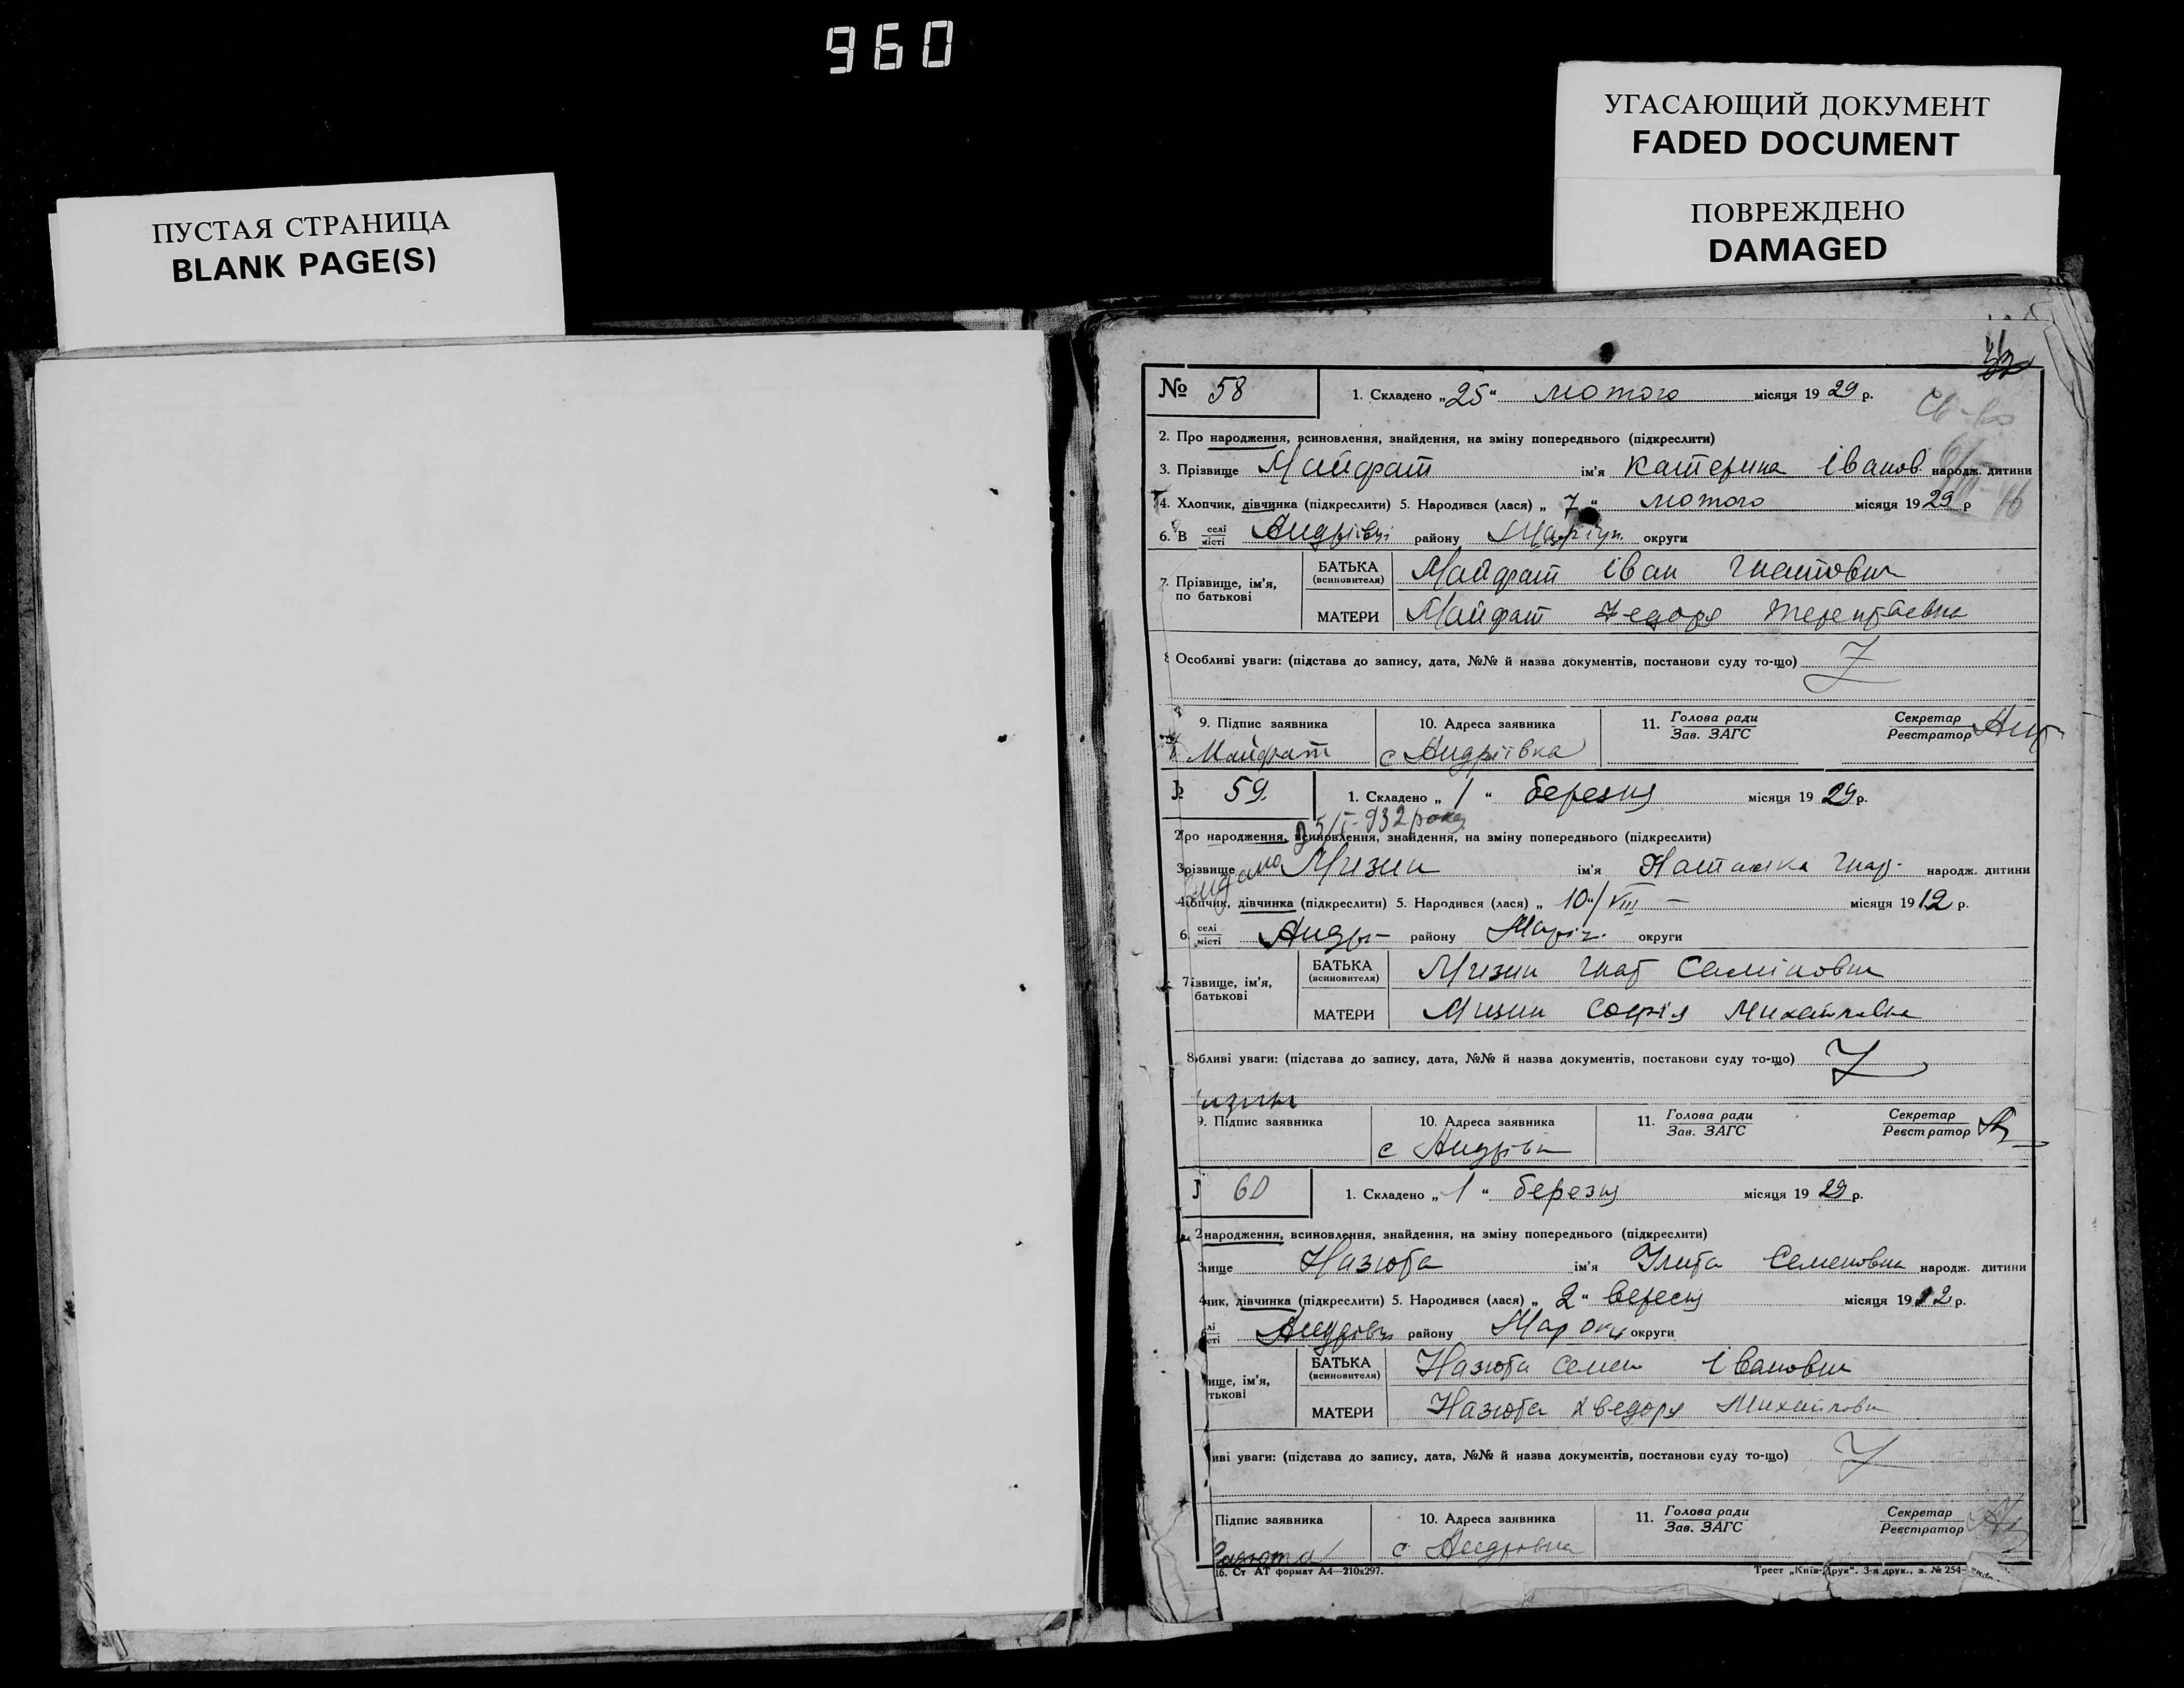 960
УГАСАЮЩИЙ ДОКУМЕНТ
FADED DOCUMENT
ПОВРЕЖДЕНО
DAMAGED
ПУСТАЯ СТРАНИЦА
BLANK PAGE(S)
№ 58 1. Складено „25“ лютого місяця 1929 р.
2. Про народження, всиновлення, знайдення, на зміну попереднього (підкреслити)
3. Прізвище Майфат ім'я Катерина Іванов. народж. дитини
4. Хлопчик, дівчинка (підкреслити) 5. Народився (лася) „7“ лютого місяця 1929 р
6. В селі місті Андрівці району Маріуп. округи
7. Прізвище, ім'я, по батькові БАТЬКА (всиновителя) Майфат Іван Гнатович
МАТЕРИ Майфат Федора Терентьевна
8 Особливі уваги: (підстава до запису, дата, №№ й назва документів, постанови суду то-що)
9. Підпис заявника 10. Адреса заявника 11. Голова ради Зав. ЗАГС Секретар Реєстратор
Майфат с Андріївка
59. 1. Складено „1“ березня місяця 1929 р.
видано 25/I-932 року
2 ро народження, всиновлення, знайдення, на зміну попереднього (підкреслити)
3 різвище Мизин ім'я Наталка Гнат. народж. дитини
4 опчик, дівчинка (підкреслити) 5. Народився (лася) „10“/VIII — місяця 1912 р.
6. селі місті Андр- району Маріу. округи
7 ізвище, ім'я, батькові БАТЬКА (всиновителя) Мизин Гнат Семінович
МАТЕРИ Мизин Софія Михайлівна
8 обливі уваги: (підстава до запису, дата, №№ й назва документів, постанови суду то-що)
9. Підпис заявника 10. Адреса заявника 11. Голова ради Зав. ЗАГС Секретар Реєстратор
с Андрівк
60 1. Складено „1“ березня місяця 1929 р.
2 народження, всиновлення, знайдення, на зміну попереднього (підкреслити)
3 вищеНазюта ім'я Улита Семеновна народж. дитини
4 чик, дівчинка (підкреслити) 5. Народився (лася) „2“ вересня місяця 1912 р.
лі сті Андрівці району Мар окр округи
вище, ім'я, тькові БАТЬКА (всиновителя) Назюта Семен Іванович
МАТЕРИ Назюта Хведора Михайловн
иві уваги: (підстава до запису, дата, №№ й назва документів, постанови суду то-що)
Підпис заявника 10. Адреса заявника 11. Голова ради Зав. ЗАГС Секретар Реєстратор
с Андровка
16. Ст АТ формат А4—210х297. Трест „Київ-Друк“. 3-я друк., з. № 254